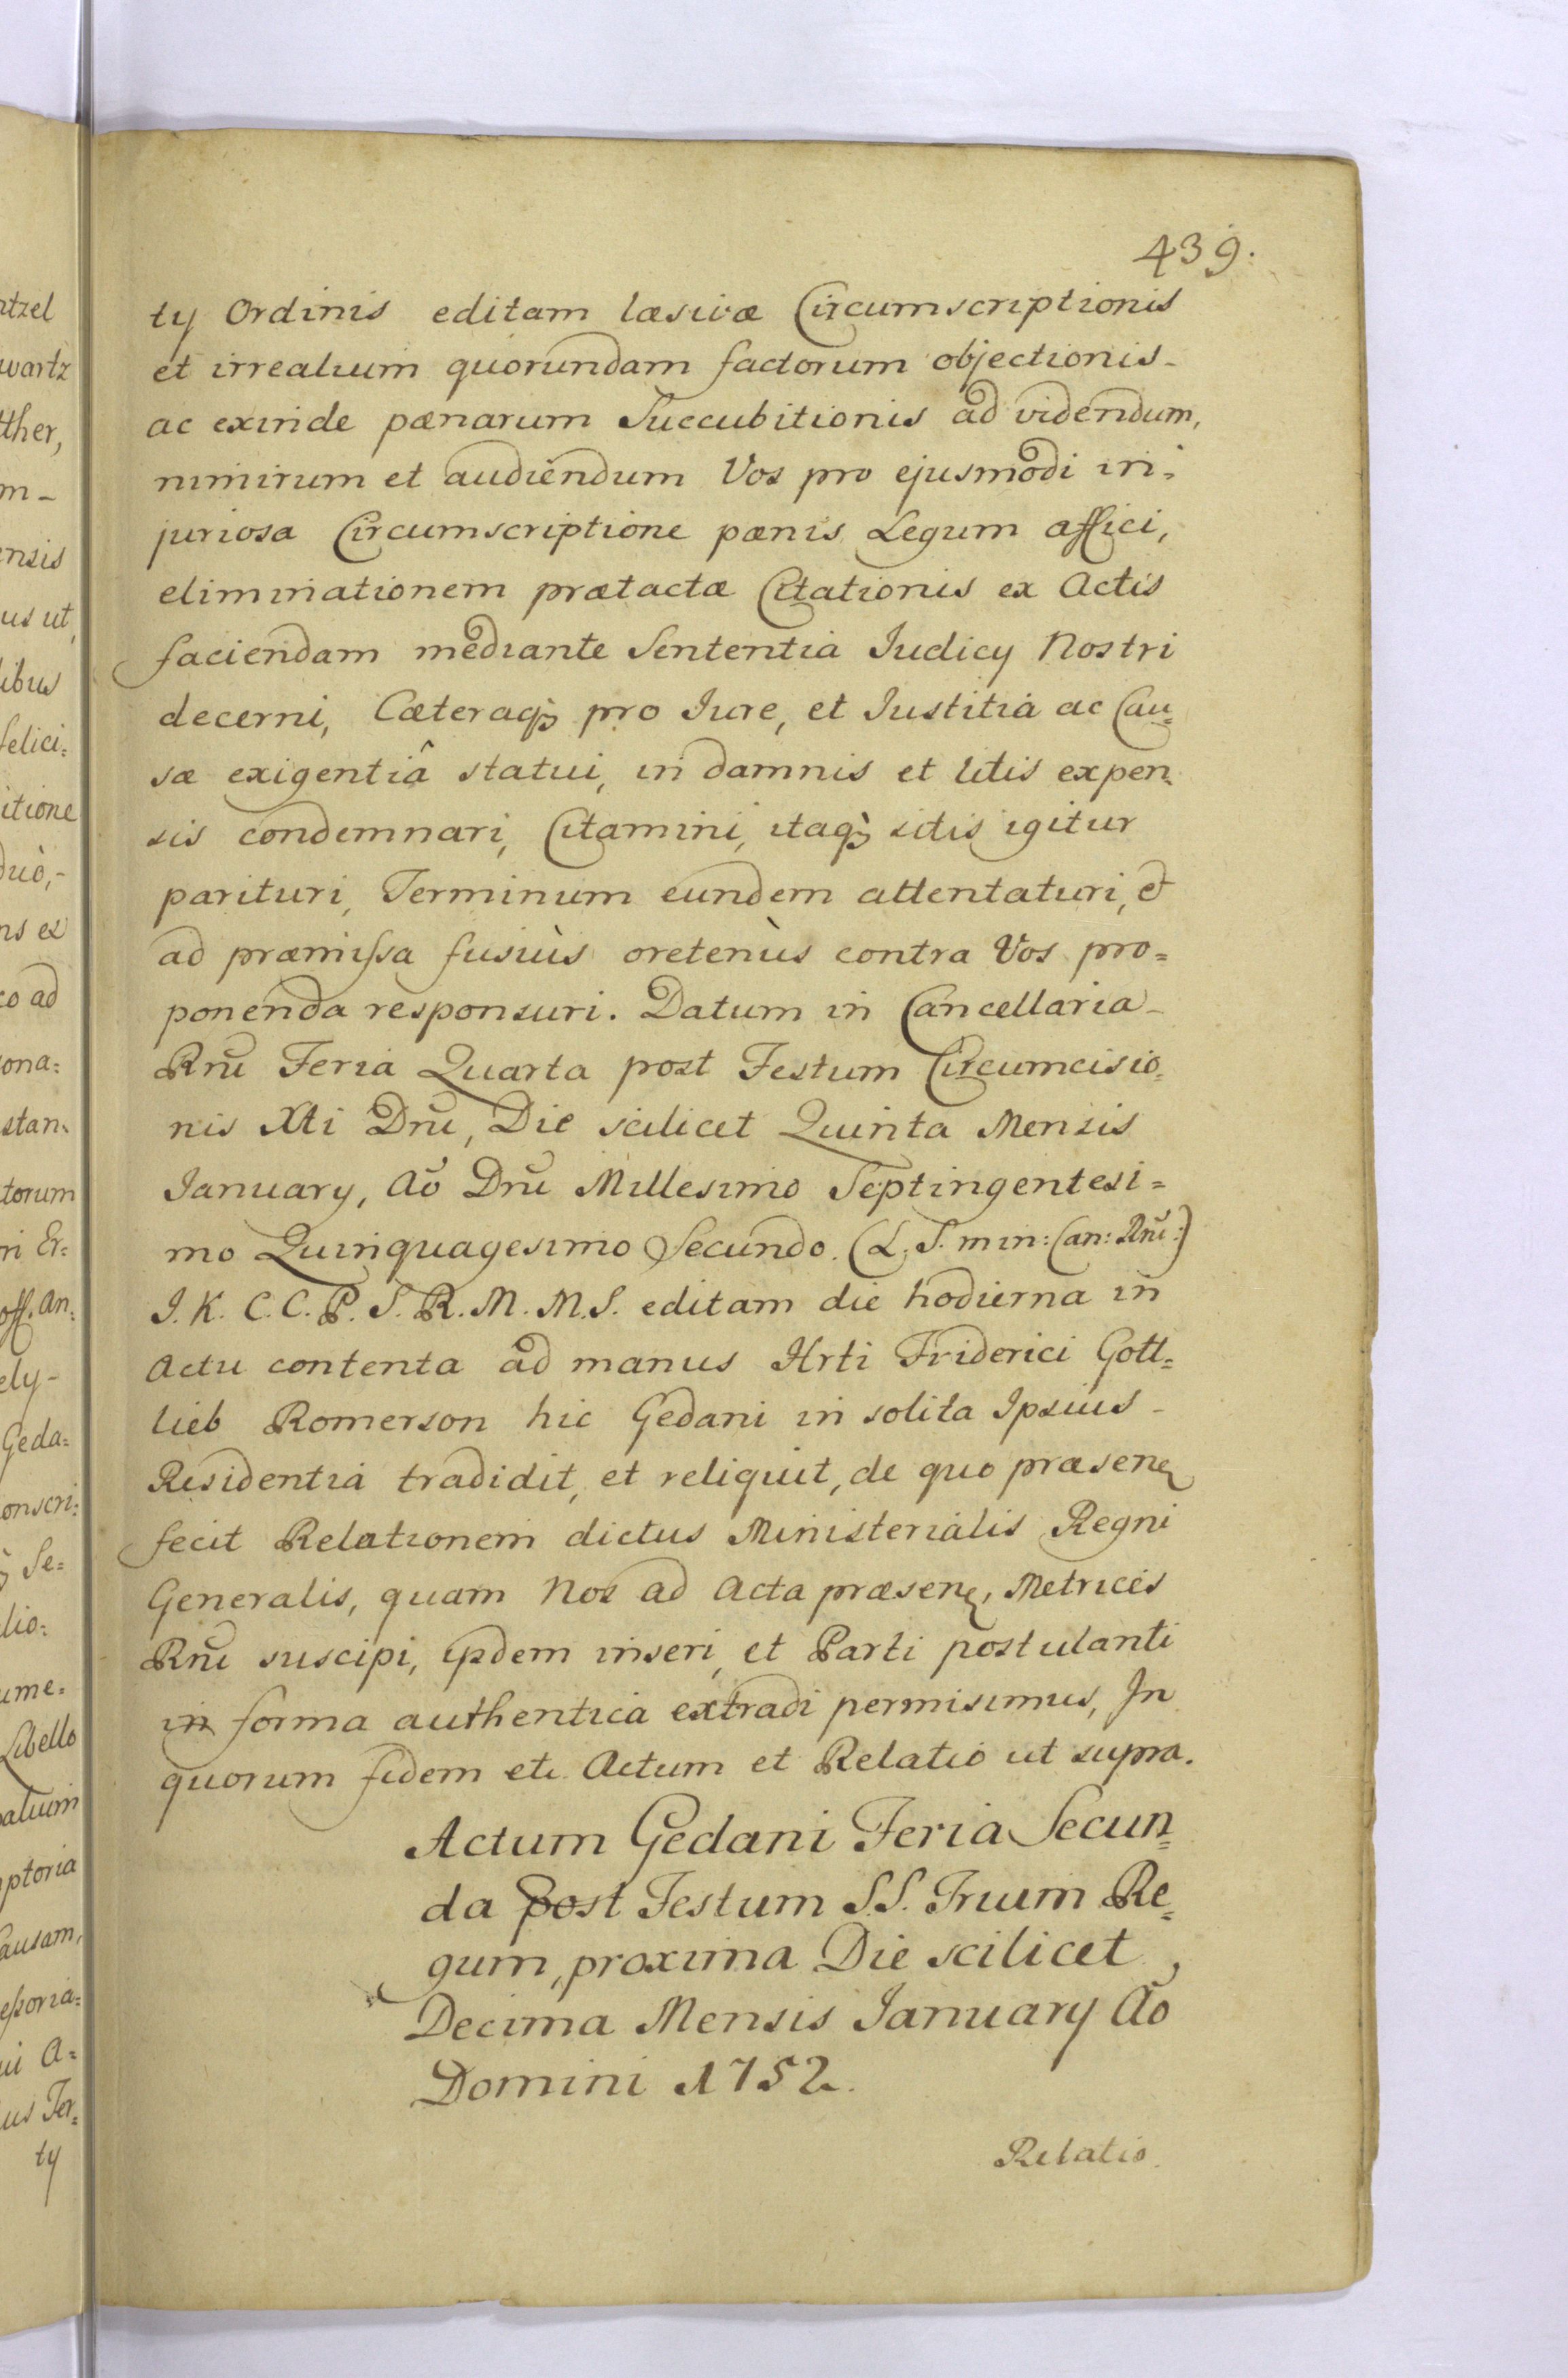 439.
ty Ordinis editam læsivæ Circumscriptionis
et irrealium quorundam factorum objectionis-
ac exinde pænarum Succubitionis ad videndum,
nimirum et audiendum Vos pro ejusmodi in-
juriosa Circumscriptione pænis Legum affici,
eliminationem prætactæ Citationis ex Actis
faciendam mediante Sententia Iudicy Nostri
decerni, Cæteraq; pro Iure, et Iustitia ac Cau=
sæ exigentiâ statui, in damnis et litis expen-
sis condemnari, Citamini, itaq; sitis igitur
parituri, Terminum eundem attentaturi, et
ad præmissa fusiùs oretenùs contra Vos pro=
ponenda responsuri. Datum in Cancellaria-
Rni Feria Quarta post Festum Circumcisio=
nis Xti Dni, Die scilicet Quinta Mensis
Ianuary, Ao Dni Millesimo Septingentesi=
mo Quinquagesimo Secundo. (L. S. min: Can: Rni:)
I. K. C. C. P. S. R. M. M. S. editam die hodierna in
Actu contenta ad manus Hrti Friderici Gott=
lieb Romerson hic Gedani in solita Ipsius-
Residentia tradidit, et reliquit, de quo præsen
fecit Relationem dictus Ministerialis Regni
Generalis, quam Nos ad Acta præsen, Metrices
Rni suscipi, ijsdem inseri, et Parti postulanti
in forma authentica extradi permisimus, In
quorum fidem etc. Actum et Relatio ut supra.
Actum Gedani Feria Secun=
da post Festum S.S. Trium Re=
gum, proxima Die scilicet,
Decima Mensis Ianuary Ao
Domini 1752.
Relatio.